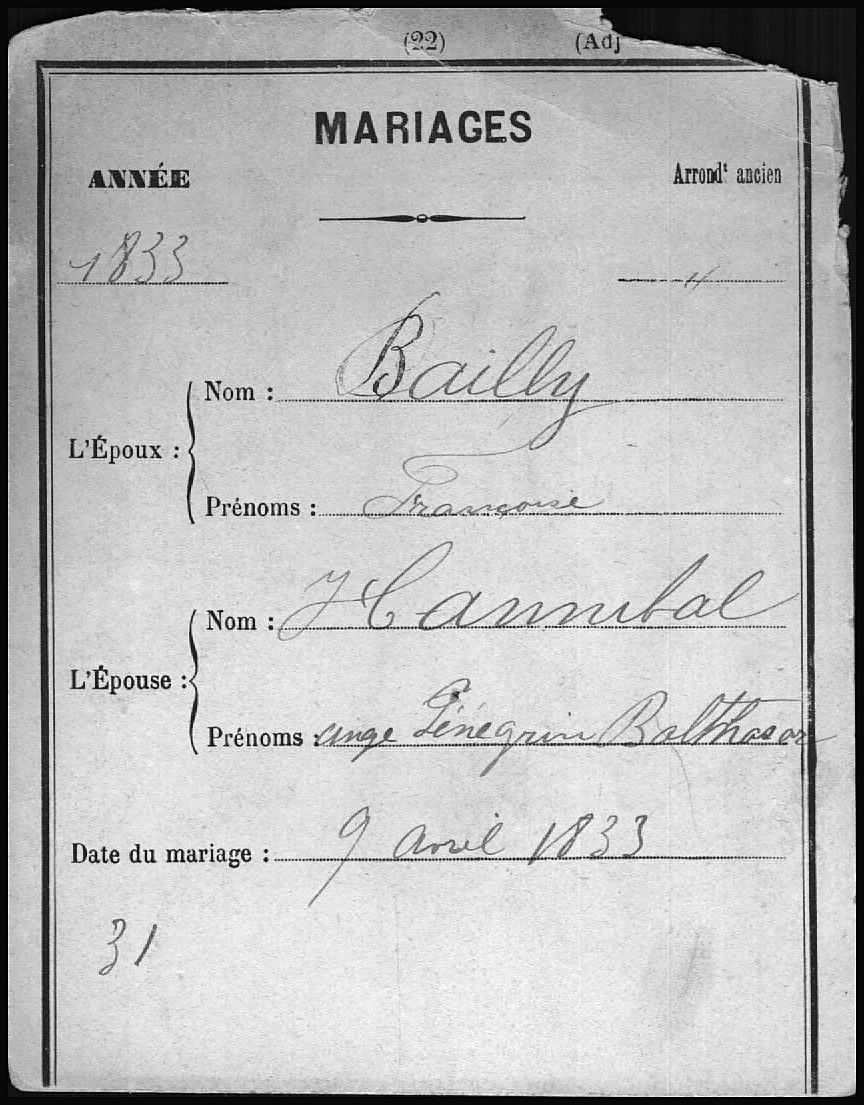 (22) (Adj
MARIAGES
ANNÉE Arrondt ancien
1833 "
L'Époux :
Nom : Bailly
Prénoms : Françoise
L'Épouse :
Nom : Hannibal
Prénoms : ange Pénégrin Balthasar
Date du mariage : 9 avril 1833
31